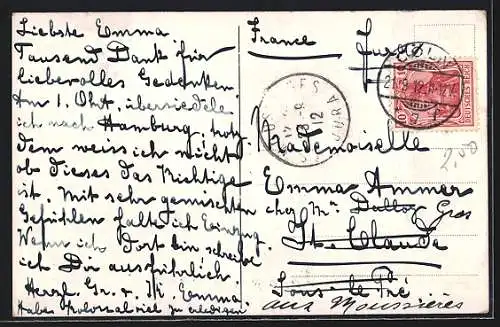 Liebste Emma.
Tausend Dank für
liebevolles Gedenken.
Am 1. Okt. übersiedele
ich nach Hamburg, trotz-
dem weiss ich nicht
ob dieses das Richtige
ist. Mit sehr gemischten
Gefühlen halte ich Einzug.
Wenn ich dort bin schreibe
ich Dir ausführlich.
Herzl. Gr. u. K. Emma.
Habe kolossal viel zu erledigen.
France Jura
CÖLN
21.9.12.
DEUTSCHES REICH
10 10
12 -9
12
JURA
Mademoiselle
Emma Ammer
chez Mr Dalloz Gros
St. Claude
Sous le Pré
aux Moussières
2,00